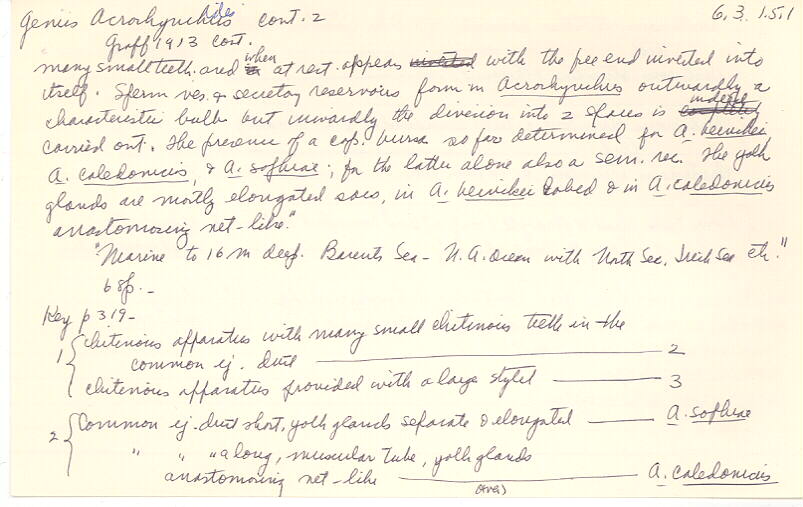 Genus Acrorhynchides cont. 2 6.3.1.5.1
Graff 1913 cont.
many small teeth and when at rest appears with the free end inverted into
itself. Sperm ves. & secretory reservoirs form in Acrorhynchus outwardly a
characteristic bulb but inwardly the division into 2 spaces is
carried out. The presence of a cop. bursa so far determined for A. heinckei,
A. caledonicus, & A. sophiae; for the latter alone also a sem. rec. The yolk
glands are mostly elongated sacs, in A. heinckei lobed & in A. caledonicus
anastomosing net-like."
"Marine to 16 m deep. Barents Sea - N. A. Ocean with North Sea, Irish Sea etc."
6 sp. -
Key p 319-
1 { chitenous apparatus with many small chitenous teeth in the
common ej. duct 2
chitenous apparatus provided with a large stylet 3
2 { Common ej. duct short, yolk glands separate & elongated A. sophiae
" " " a long, muscular tube, yolk glands
anastomosing net-like A. caledonicus
(over)